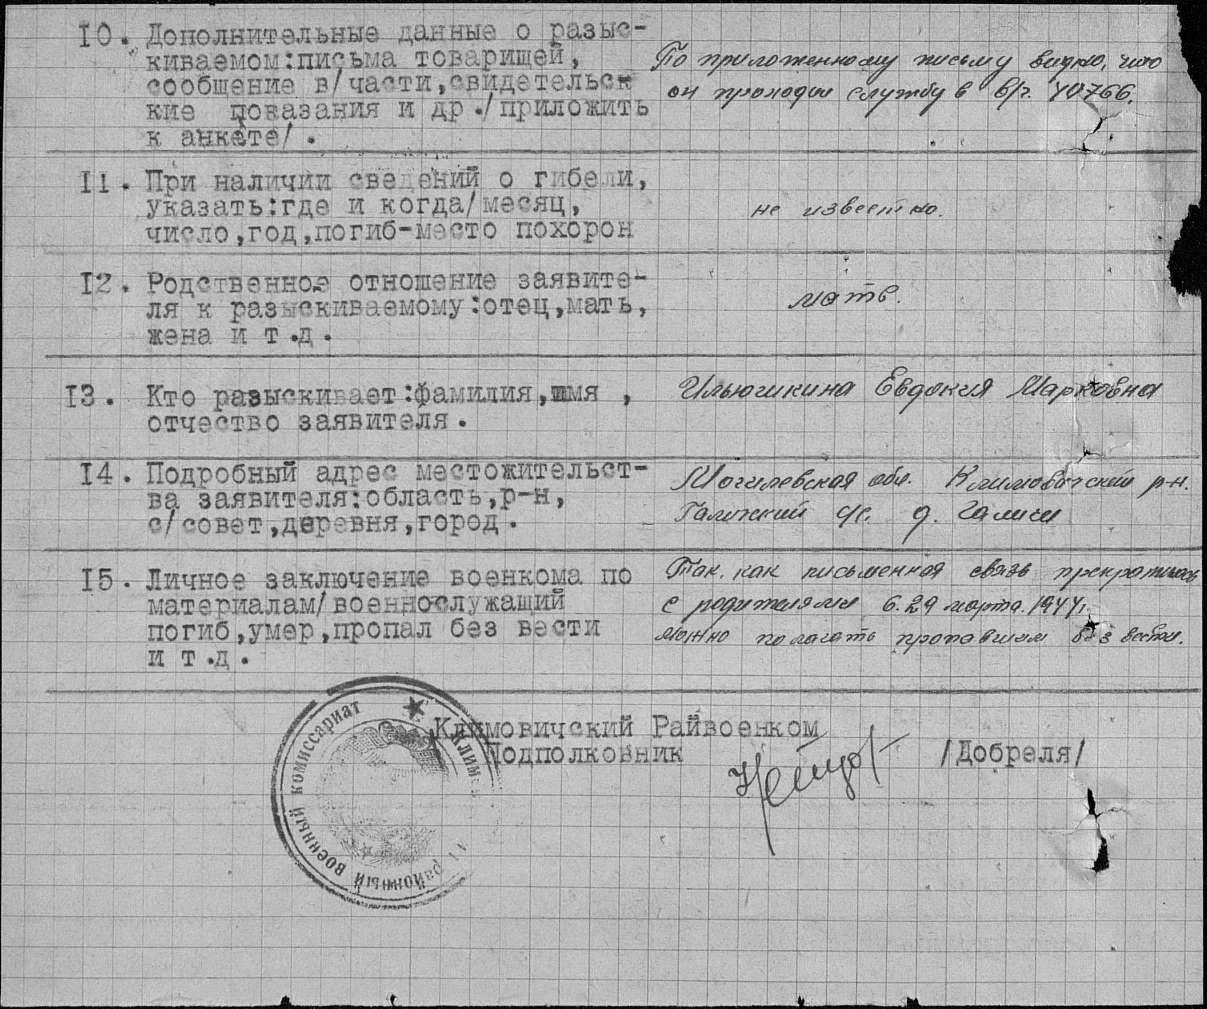 10. Дополнительные данные о разыс-
киваемом:письма товарищей,
сообщение в/части,свидетельск
кие показания и др./приложить
к анкете/.
По приложенному письму видно, что
он проходил службу в в/ч. 40766.
11. При наличии сведений о гибели,
указать:где и когда/месяц,
число,год,погиб-место похорон
не известно.
12. Родственное отношение заявите-
ля к разыскиваемому:отец,мать,
жена и т.д.
мать.
13. Кто разыскивает:фамилия,имя ,
отчество заявителя.
Ильюшкина Евдокия Марковна
14. Подробный адрес местожительст-
ва заявителя:область,р-н,
с/совет,деревня,город.
Могилевская обл. Климовичский р-н.
Галичский с/с. д. Галичи
15. Личное заключение военкома по
материалам/военнослужащий
погиб,умер,пропал без вести
и т.д.
Так, как письменная связь прекратилась
с родителями 29 марта. 1944г.
можно полагать пропавшим без вести.
Климовичский Райвоенком
Подполковник
/Добреля/
Клим
районный военный комиссариат